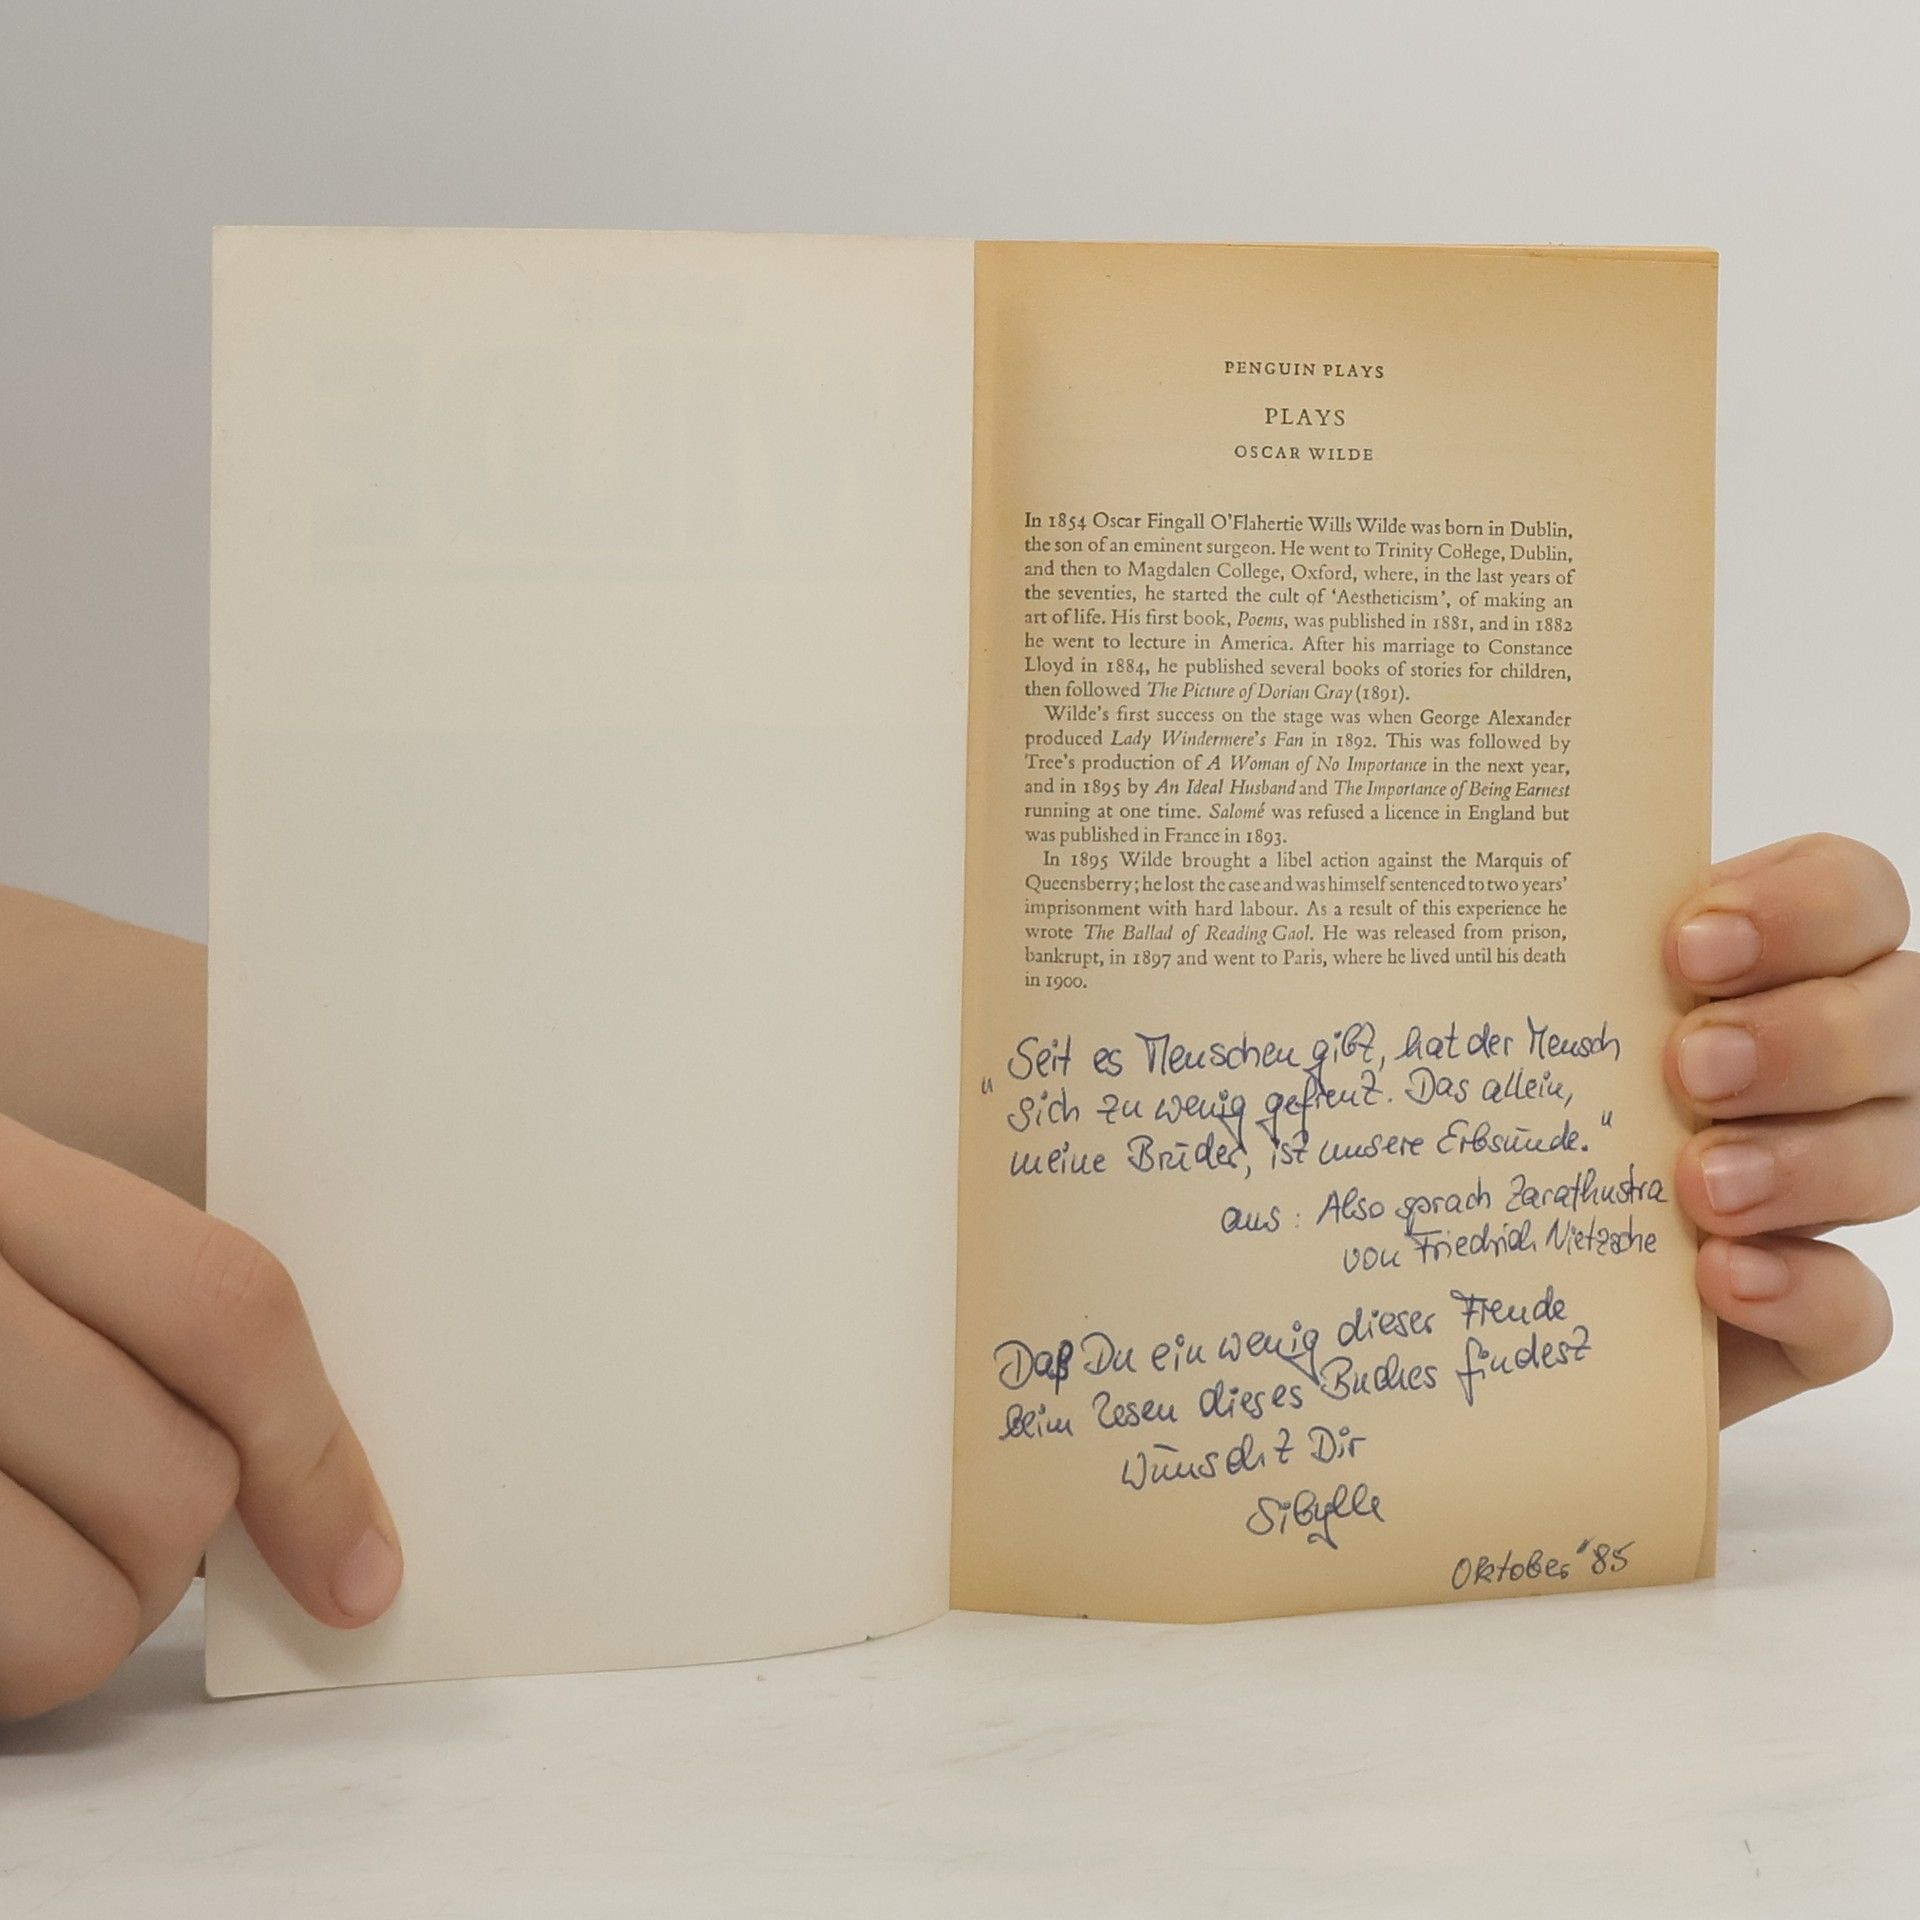 PENGUIN PLAYS
PLAYS
OSCAR WILDE
In 1854 Oscar Fingall O'Flahertie Wills Wilde was born in Dublin,
the son of an eminent surgeon. He went to Trinity College, Dublin,
and then to Magdalen College, Oxford, where, in the last years of
the seventies, he started the cult of ‘Aestheticism’, of making an
art of life. His first book, Poems, was published in 1881, and in 1882
he went to lecture in America. After his marriage to Constance
Lloyd in 1884, he published several books of stories for children,
then followed The Picture of Dorian Gray (1891).
Wilde's first success on the stage was when George Alexander
produced Lady Windermere's Fan in 1892. This was followed by
Tree's production of A Woman of No Importance in the next year,
and in 1895 by An Ideal Husband and The Importance of Being Earnest
running at one time. Salomé was refused a licence in England but
was published in France in 1893.
In 1895 Wilde brought a libel action against the Marquis of
Queensberry; he lost the case and was himself sentenced to two years'
imprisonment with hard labour. As a result of this experience he
wrote The Ballad of Reading Gaol. He was released from prison,
bankrupt, in 1897 and went to Paris, where he lived until his death
in 1900.
"Seit es Menschen gibt, hat der Mensch
sich zu wenig gefreut. Das allein,
meine Brüder, ist unsere Erbsünde."
aus: Also sprach Zarathustra
von Friedrich Nietzsche
Daß Du ein wenig dieser Freude
beim Lesen dieses Buches findest
wünscht Dir
Sibylle
Oktober "85